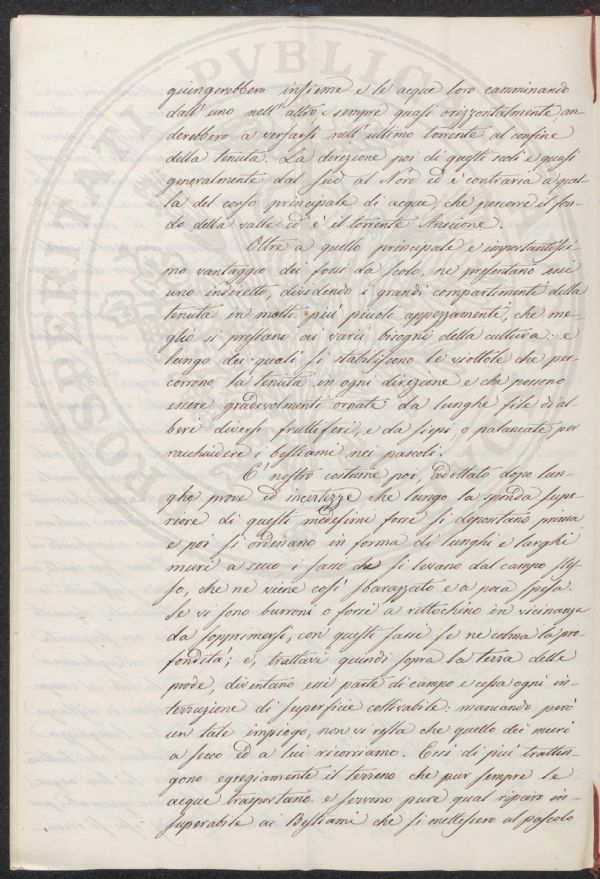 giungerebbero insieme e le acque loro camminando
dall'uno nell'altro e sempre quasi orizzontalmente an-
derebbero a versarsi nell'ultimo torrente al confine
della tenuta. La direzione poi di questi scoli è quasi
generalmente dal Sud al Nord ed è contraria a quel-
la del corso principale di acque, che percorre il fon-
do della valle ed è il torrente
Oltre a questo principale e importantissi-
mo vantaggio dei fossi da scolo, ne presentano essi
uno indiretto, dividendo i grandi compartimenti della
tenuta in molti più piccoli appezzamenti, che me-
glio si prestano ai varii bisogni della cultura: e
lungo dei quali si stabiliscono le viottole che per-
corrono la tenuta in ogni direzione e che possono
essere gradevolmente ornate da lunghe file di al-
beri diversi fruttiferi, e da siepi o palancate per
racchiudere i bestiami nei pascoli.
È nostro costume poi, adottato dopo lun-
ghe prove ed incertezze che lungo la sponda supe-
riore di questi medesimi fossi si depositano prima
e poi si ordinano in forma di lunghi e larghi
muri a secco i sassi che si levano dal campo stes-
so, che ne viene così sbarazzato e a poca spesa.
Se vi sono burroni o fossi a rittochino in vicinanza
da sopprimersi, con questi sassi se ne colma la pro-
fondità; e, trattavi quindi sopra la terra delle
prode, diventano essi parte di campo e cessa ogni in-
terruzione di superficie coltivabile: mancando però
un tale impiego, non vi resta che quello dei muri
a secco ed a lui ricorriamo. Essi di più tratten-
gono egregiamente il terreno che pur sempre le
acque trasportano e servono pure qual riparo in-
superabile ai Bestiami che si mettessero al pascolo